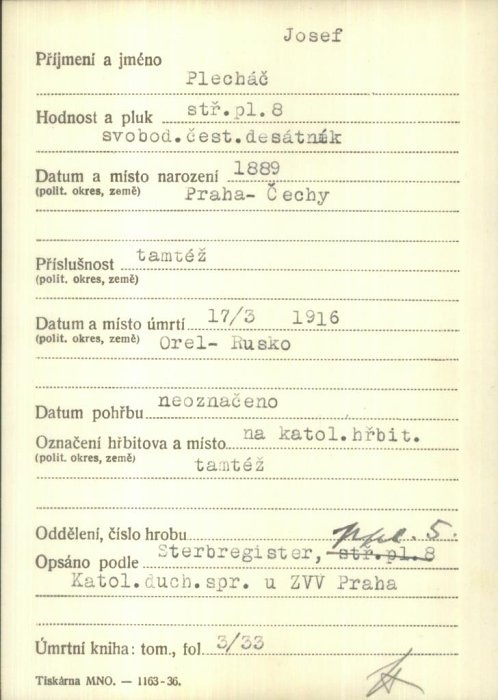 Josef
Příjmení a jméno
Plecháč
Hodnost a pluk stř.pl.8
svobod.čest.desátník
Datum a místo narození 1889
(polit. okres, země) Praha- Čechy
Příslušnost tamtéž
(polit. okres, země)
Datum a místo úmrtí 17/3 1916
(polit. okres, země) Orel- Rusko
Datum pohřbu neoznačeno
Označení hřbitova a místo na katol.hřbit.
(polit. okres, země) tamtéž
Oddělení, číslo hrobu
5.
Opsáno podle Sterbregister, stř.pl.8
Katol.duch.spr. u ZVV Praha
Úmrtní kniha: tom., fol 3/33
Tiskárna MNO. — 1163-36.